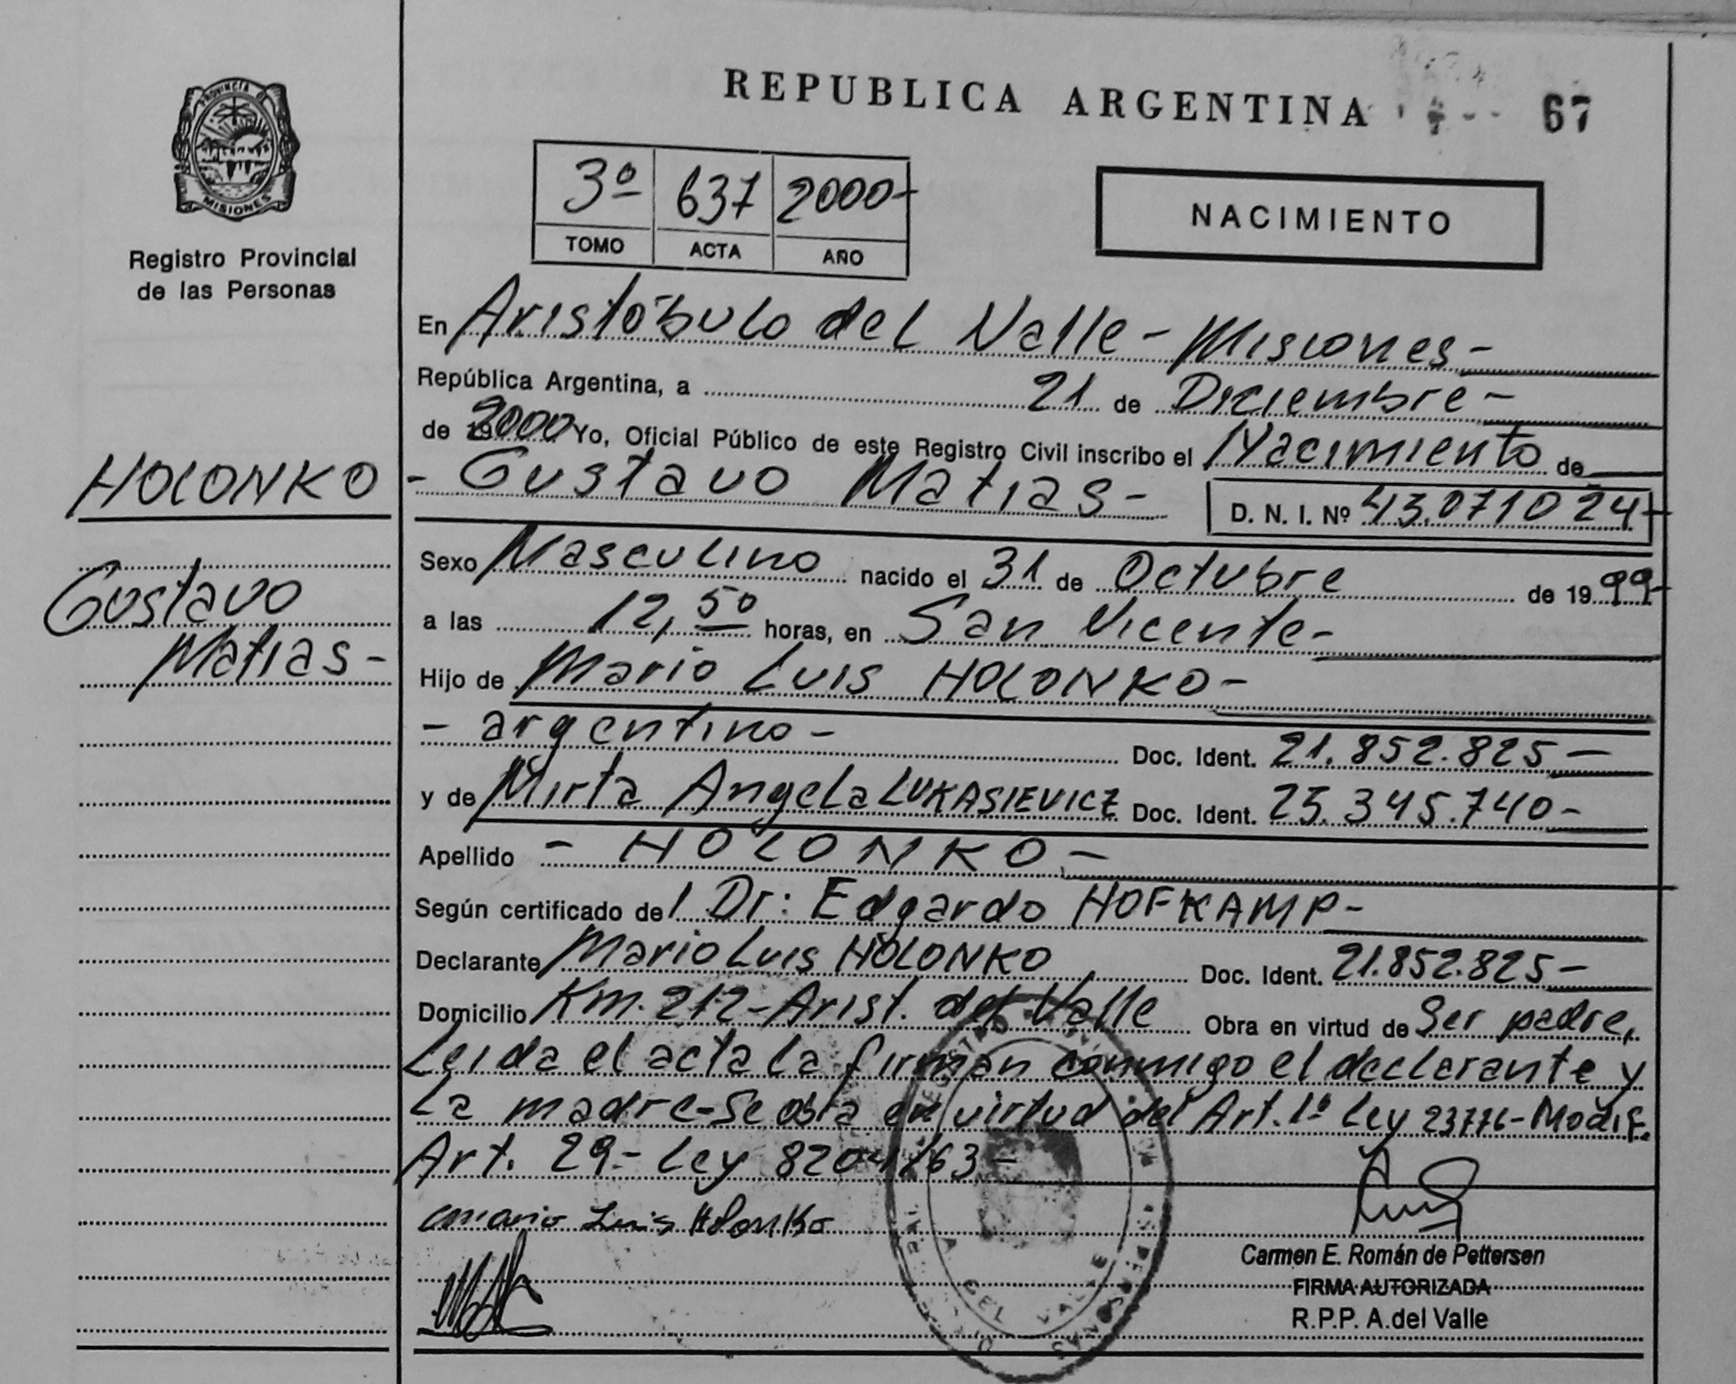 REPUBLICA ARGENTINA
67
PROVINCIA DE
MISIONES
Registro Provincial
de las Personas
3º 637 2000-
TOMO ACTA AÑO
NACIMIENTO
En Aristóbulo del Valle - Misiones -
República Argentina, a 21 de Diciembre -
de 2000 Yo, Oficial Público de este Registro Civil inscribo el Nacimiento de
HOLONKO
- Gustavo Matias -
D. N. I. Nº 43.071024-
Gustavo
Matias -
Sexo Masculino nacido el 31 de Octubre de 1999-
a las 12,50 horas, en San Vicente -
Hijo de Mario Luis HOLONKO -
- argentino - Doc. Ident. 21.852.825 -
y de Mirta Angela LUKASIEVICZ Doc. Ident. 25.345.740 -
Apellido - HOLONKO -
Según certificado del Dr: Edgardo HOFKAMP -
Declarante Mario Luis HOLONKO Doc. Ident. 21.852.825 -
Domicilio Km. 212 - Arist. del Valle Obra en virtud de Ser padre,
Leida el acta la firman conmigo el declarante y
la madre - Se obra en virtud del Art. 1º Ley 23776 - Modif.
Art. 29 - Ley 8204/63 -
Mario Luis Holonko
Carmen E. Román de Pettersen
FIRMA AUTORIZADA
R.P.P. A.del Valle